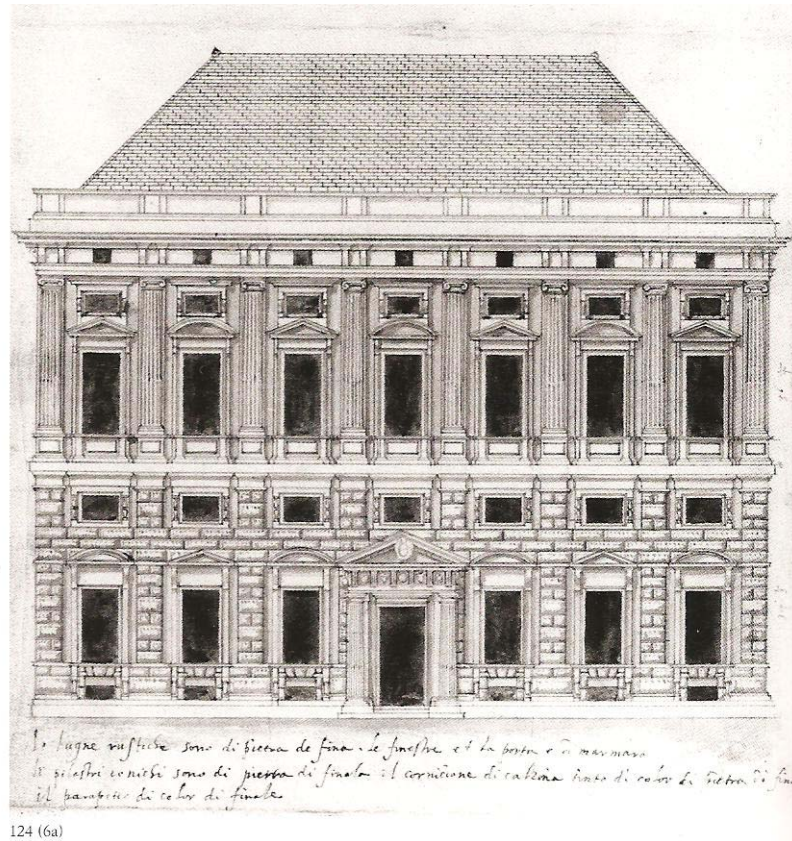 Le bugne rustiche sono di pietra de fina . le finestre et la porta è di marmaro
li pilastri ionichi sono di pietra di finale il cornicione di calzina tinto di color di pietra di
il parapetto di color di finale
124 (6a)